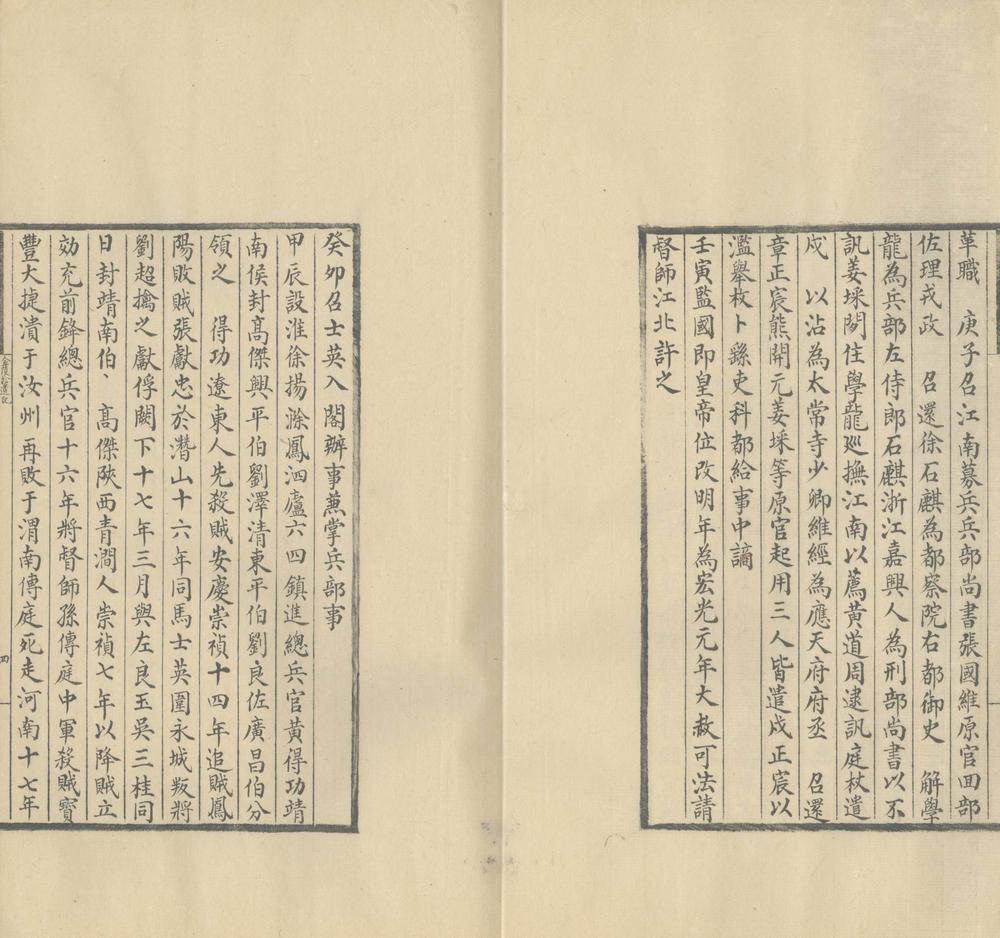 革職　庚子召江南募兵兵部尚書張國維原官回部
佐理戎政　召還徐石麒為都察院右都御史　解學
龍為兵部左侍郎石麒浙江嘉興人為刑部尚書以不
訊姜埰閒住學龍巡撫江南以薦黃道周逮訊庭杖遣
戍　以沾為太常寺少卿維經為應天府府丞　召還
章正宸熊開元姜埰等原官起用三人皆遣戍正宸以
濫舉枚卜繇吏科都給事中謫
壬寅監國即皇帝位改明年為宏光元年大赦可法請
督師江北許之
癸卯召士英入閣辦事蒹掌兵部事
甲辰設淮徐揚滁鳳泗廬六四鎮進總兵官黃得功靖
南侯封高傑興平伯劉澤清東平伯劉良佐廣昌伯分
領之　得功遼東人先殺賊安慶崇禎十四年追賊鳳
陽敗賊張獻忠於潛山十六年同馬士英圍永城叛將
劉超擒之獻俘闕下十七年三月與左良玉吳三桂同
日封靖南伯、高傑陝西青澗人崇禎七年以降賊立
効充前鋒總兵官十六年將督師孫傳庭中軍殺賊寶
豐大捷潰于汝州再敗于渭南傳庭死走河南十七年
四